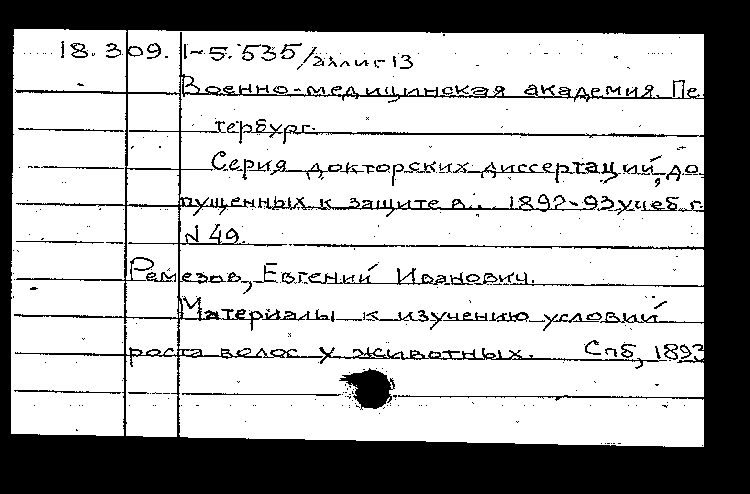 18.309. 1-5.535/аллиг 13
Военно-медицинская академия. Пе-
тербург.
Серия докторских диссертаций, до
пущенных к защите в... 1892-93 учеб.г.
N 49.
Ремезов, Евгений Иванович.
Материалы к изучению условий
роста волос у животных. Спб, 1893